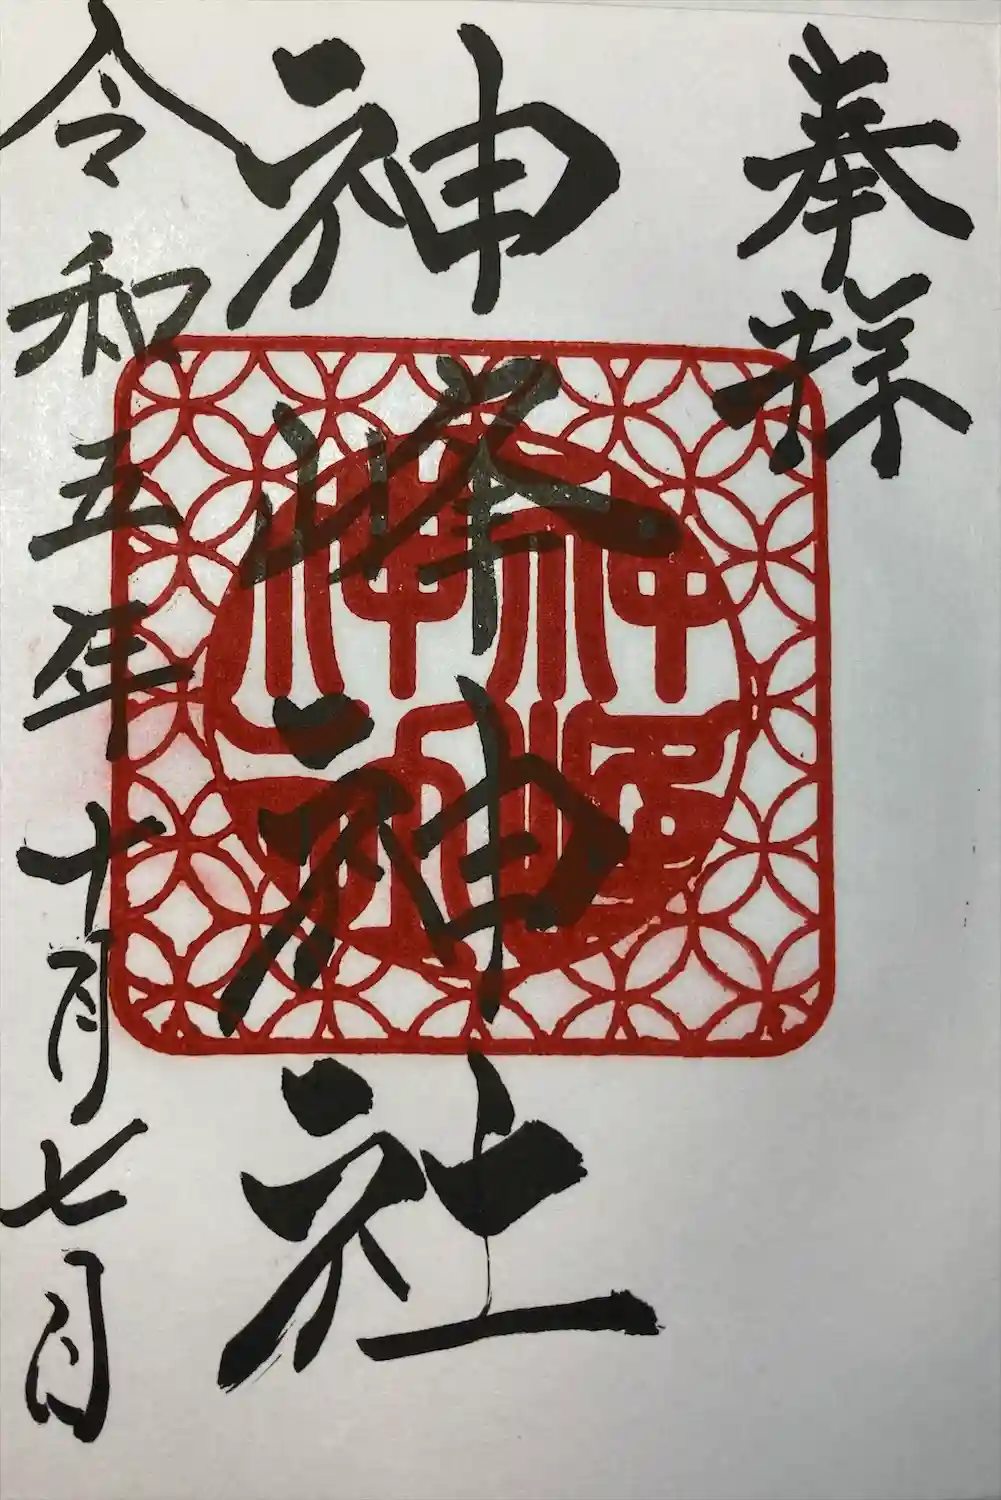 奉拜
神峰神社
神峰神社
令和五年十月七日